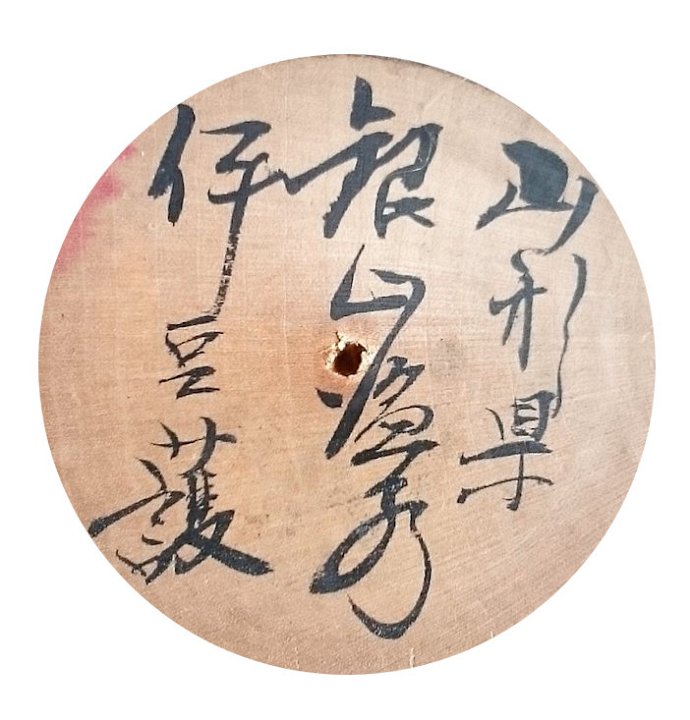 山形県
銀山温泉
伊豆護